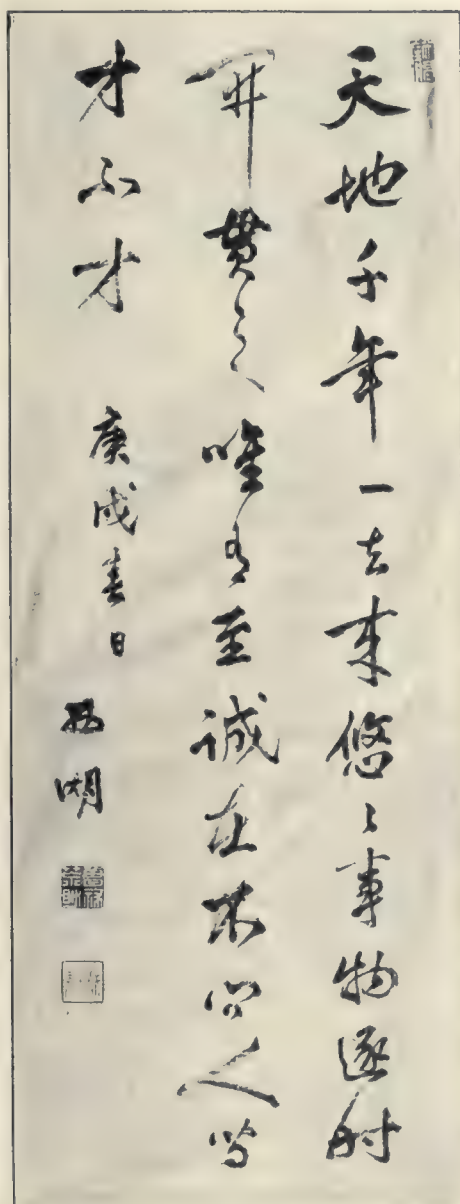 天地千年一去来悠々事物逐时
開貫之唯有至誠在问人
才不才
庚戌春日